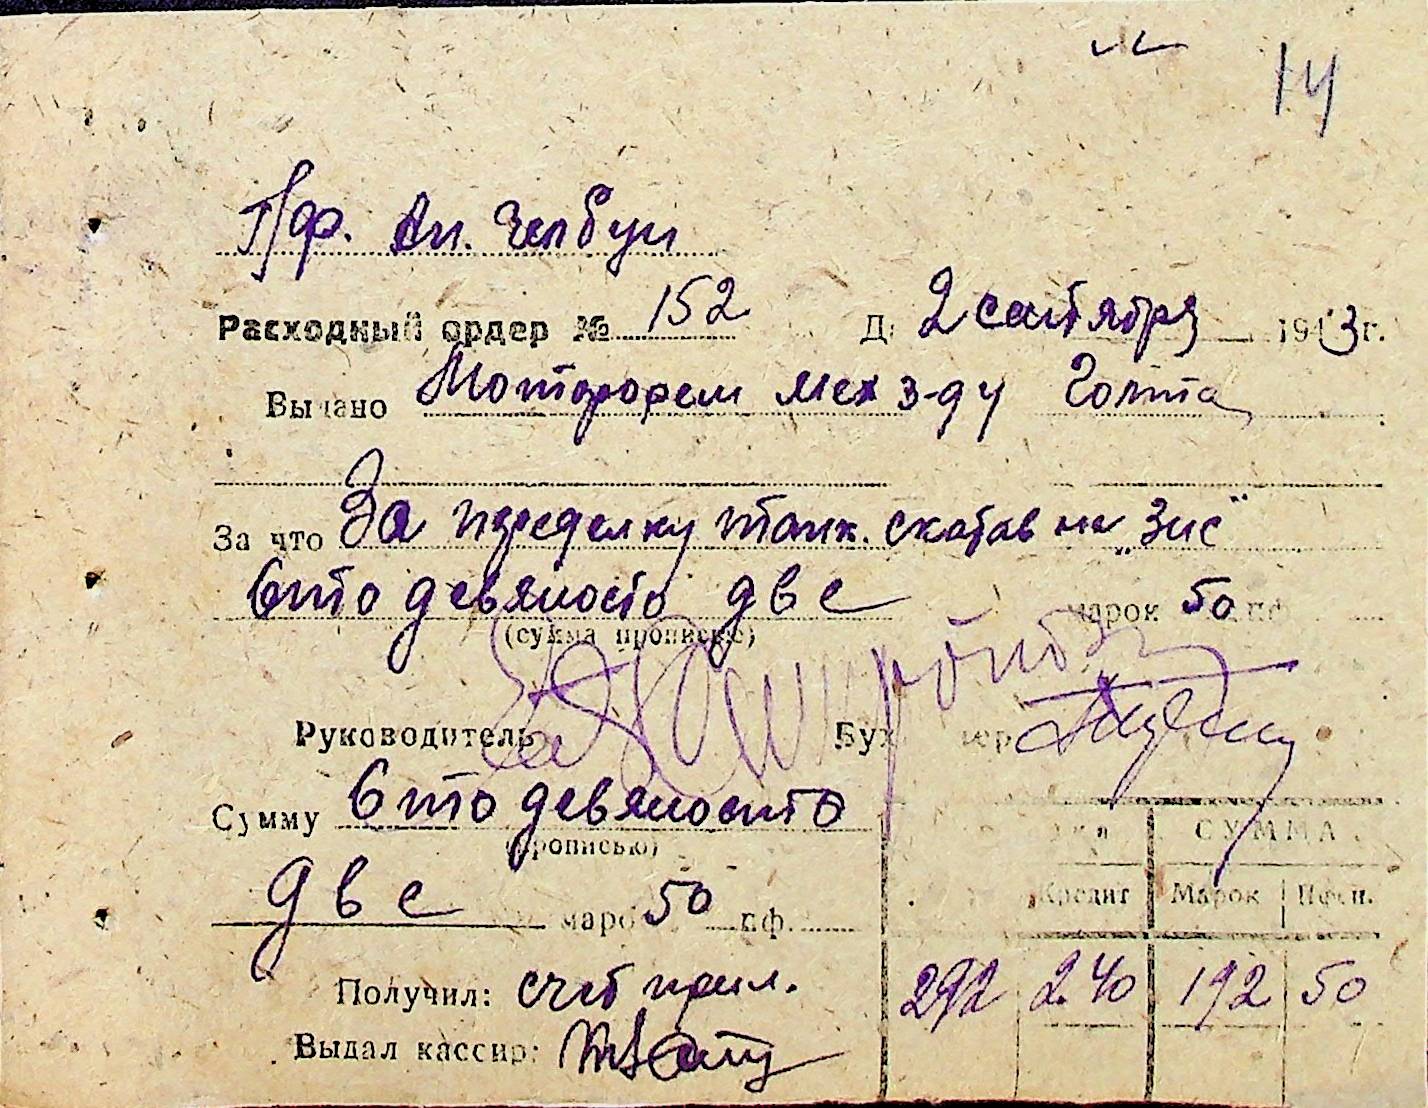 14
Пф. Ан. Чепбун
Расходный ордер № 152 Д 2 сентября 1943 г.
Выдано мех з-ду Голта
За что За переделку танк. скатов на „Зис"
Сто девяносто две марок 50 пф
(сумма прописью)
Руководитель Бух ер
Сумму Сто девяносто
(прописью)
две маро 50 пф.
СУММА
Кредит Марок Пфен.
Получил: счет прил. 292 240 192 50
Выдал кассир: